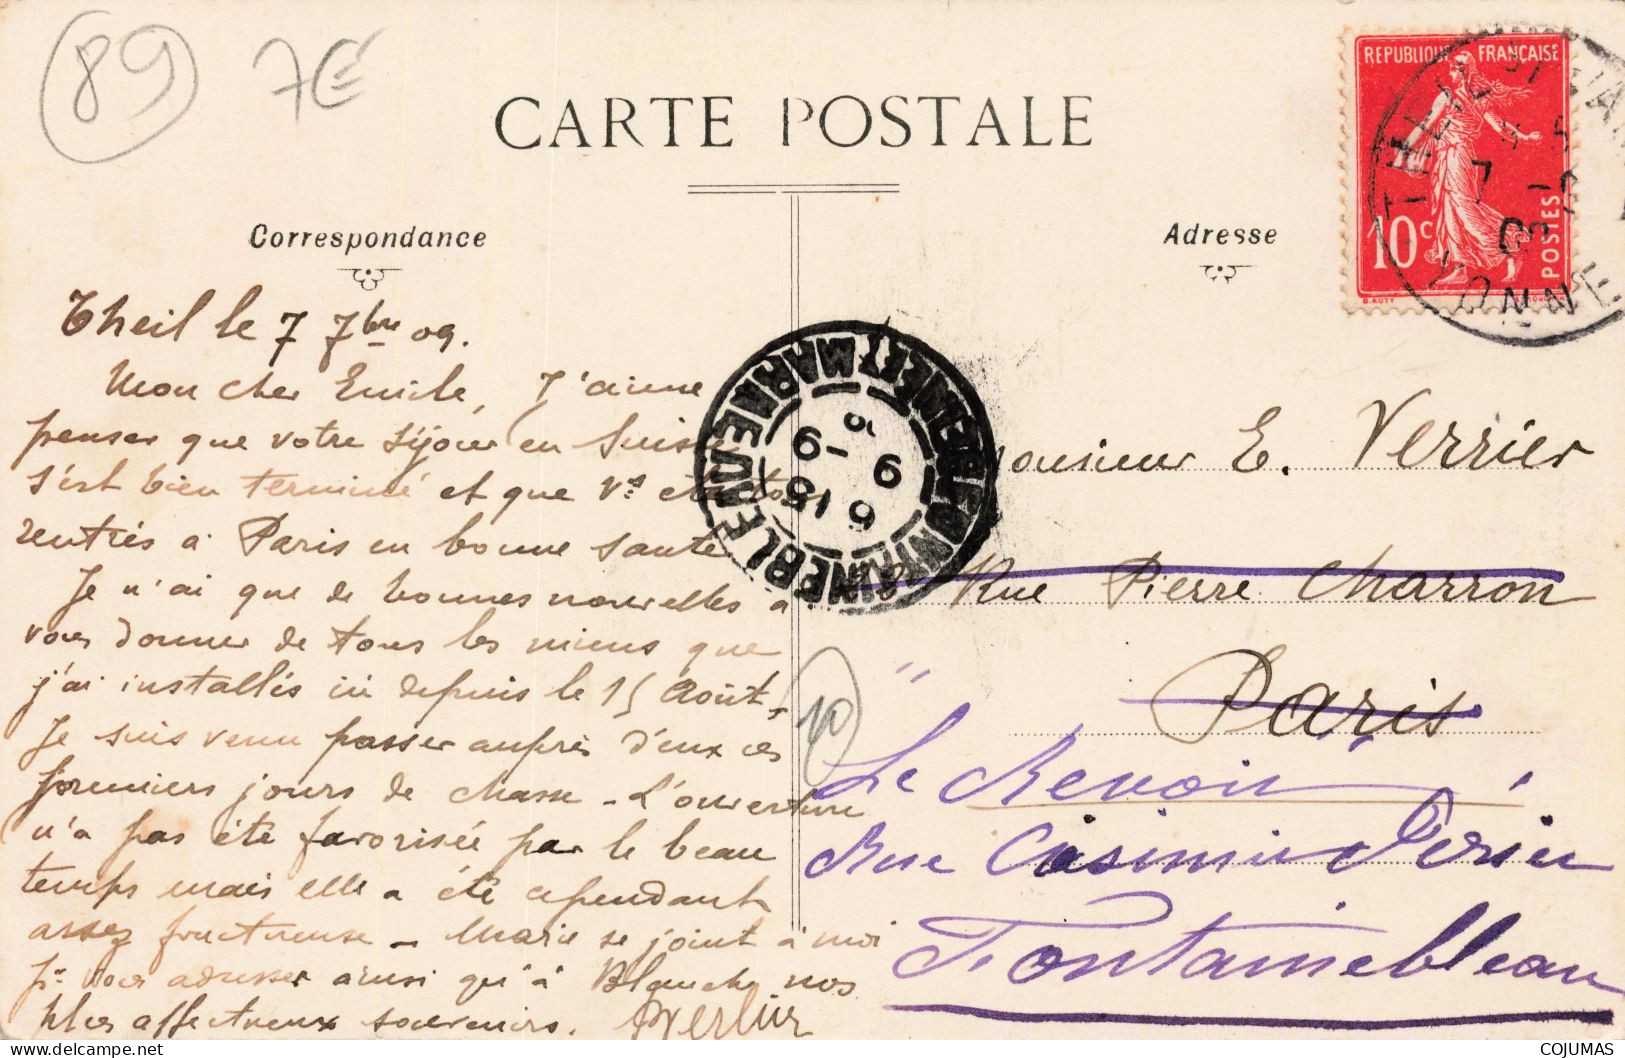 89
7€
CARTE POSTALE
Correspondance
Adresse
REPUBLIQUE FRANÇAISE
10c
POSTES
THEIL
YONNE
Theil le 7 7bre 09.
Mon cher Emile, J'aime
penser que votre séjour en Suisse
s'est bien terminé et que vs etes tous
rentrés à Paris en bonne santé
Je n'ai que de bonnes nouvelles à
vous donner de tous les miens que
j'ai installés ici depuis le 15 Août.
Je suis venu passer auprès d'eux ces
premiers jours de chasse - L'ouverture
n'a pas été favorisée par le beau
temps mais elle a été cependant
assez fructueuse - Marie se joint à moi
pr vous adresser ainsi qu'à Blanche nos
plus affectueux souvenirs.
FONTAINEBLEAU
SEINE ET MARNE
6 15
9 - 9
Monsieur E. Verrier
Rue Pierre Charron
Paris
10
"Le Revoir"
Rue Casimir Perier
Fontainebleau
COJUMAS